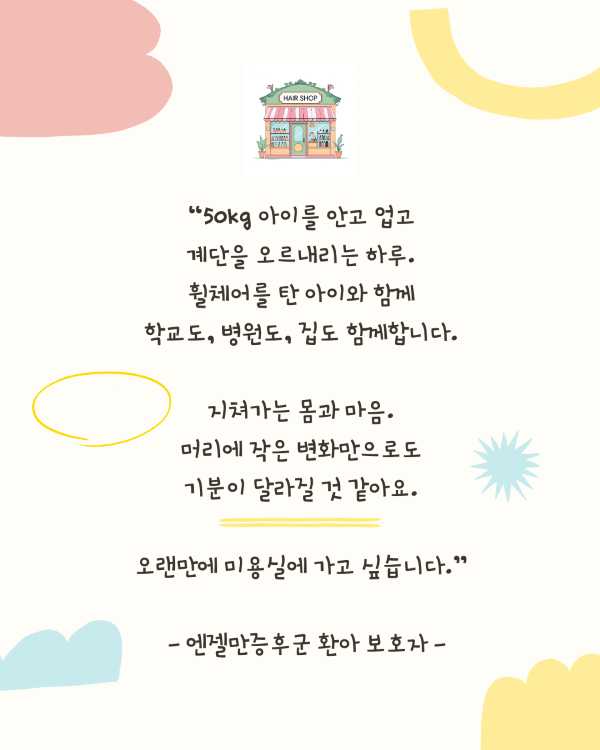 HAIR SHOP
“50kg 아이를 안고 업고
계단을 오르내리는 하루.
휠체어를 탄 아이와 함께
학교도, 병원도, 집도 함께합니다.
지쳐가는 몸과 마음.
머리에 작은 변화만으로도
기분이 달라질 것 같아요.
오랜만에 미용실에 가고 싶습니다.”
- 엔젤만증후군 환아 보호자 -